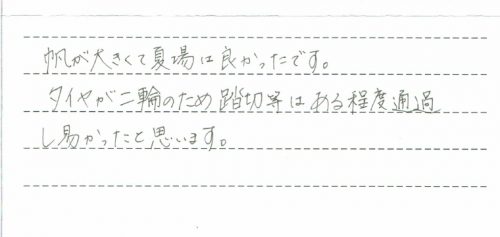 帆が大きくて夏場は良かったです。
タイヤが二輪のため踏切等はある程度通過
し易かったと思います。